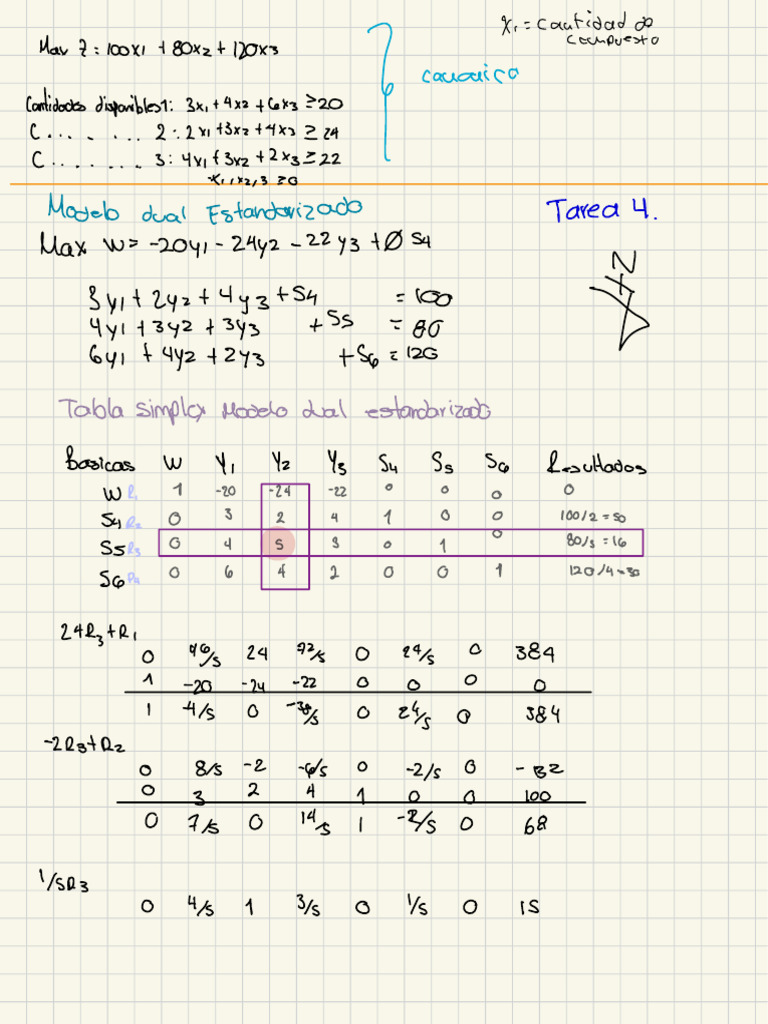 X₁ = cantidad de
compuesto
Max Z = 100x1 + 80x2 + 120x3
canonico
Cantidades disponibles 1: 3x1 + 4x2 + 6x3 ≥ 20
C . . . . . . . 2 : 2x1 + 3x2 + 4x3 ≥ 24
C . . . . . . . . 3: 4x1 + 3x2 + 2x3 ≥ 22
x1, x2, 3 ≥ 0
Modelo dual Estandarizado
Tarea 4.
Max W = -20y1 - 24y2 - 22y3 + 0 S4
N
3y1 + 2y2 + 4y3 + S4 = 100
4y1 + 3y2 + 3y3 + S5 = 80
6y1 + 4y2 + 2y3 + S6 = 120
Tabla simplex Modelo dual estandarizado
Basicas W Y1 Y2 Y3 S4 S5 S6 Resultados
W R1 1 -20 -24 -22 0 0 0 0
S4 R2 0 3 2 4 1 0 0 100/2 = 50
S5 R3 0 4 5 3 0 1 0 80/5 = 16
S6 R4 0 6 4 2 0 0 1 120/4 = 30
24R3+R1
0 96/5 24 72/5 0 24/5 0 384
1 -20 -24 -22 0 0 0 0
1 -4/5 0 -38/5 0 24/5 0 384
-2R3+R2
0 8/5 -2 -6/5 0 -2/5 0 -32
0 3 2 4 1 0 0 100
0 7/5 0 14/5 1 -2/5 0 68
1/5R3
0 4/5 1 3/5 0 1/5 0 15